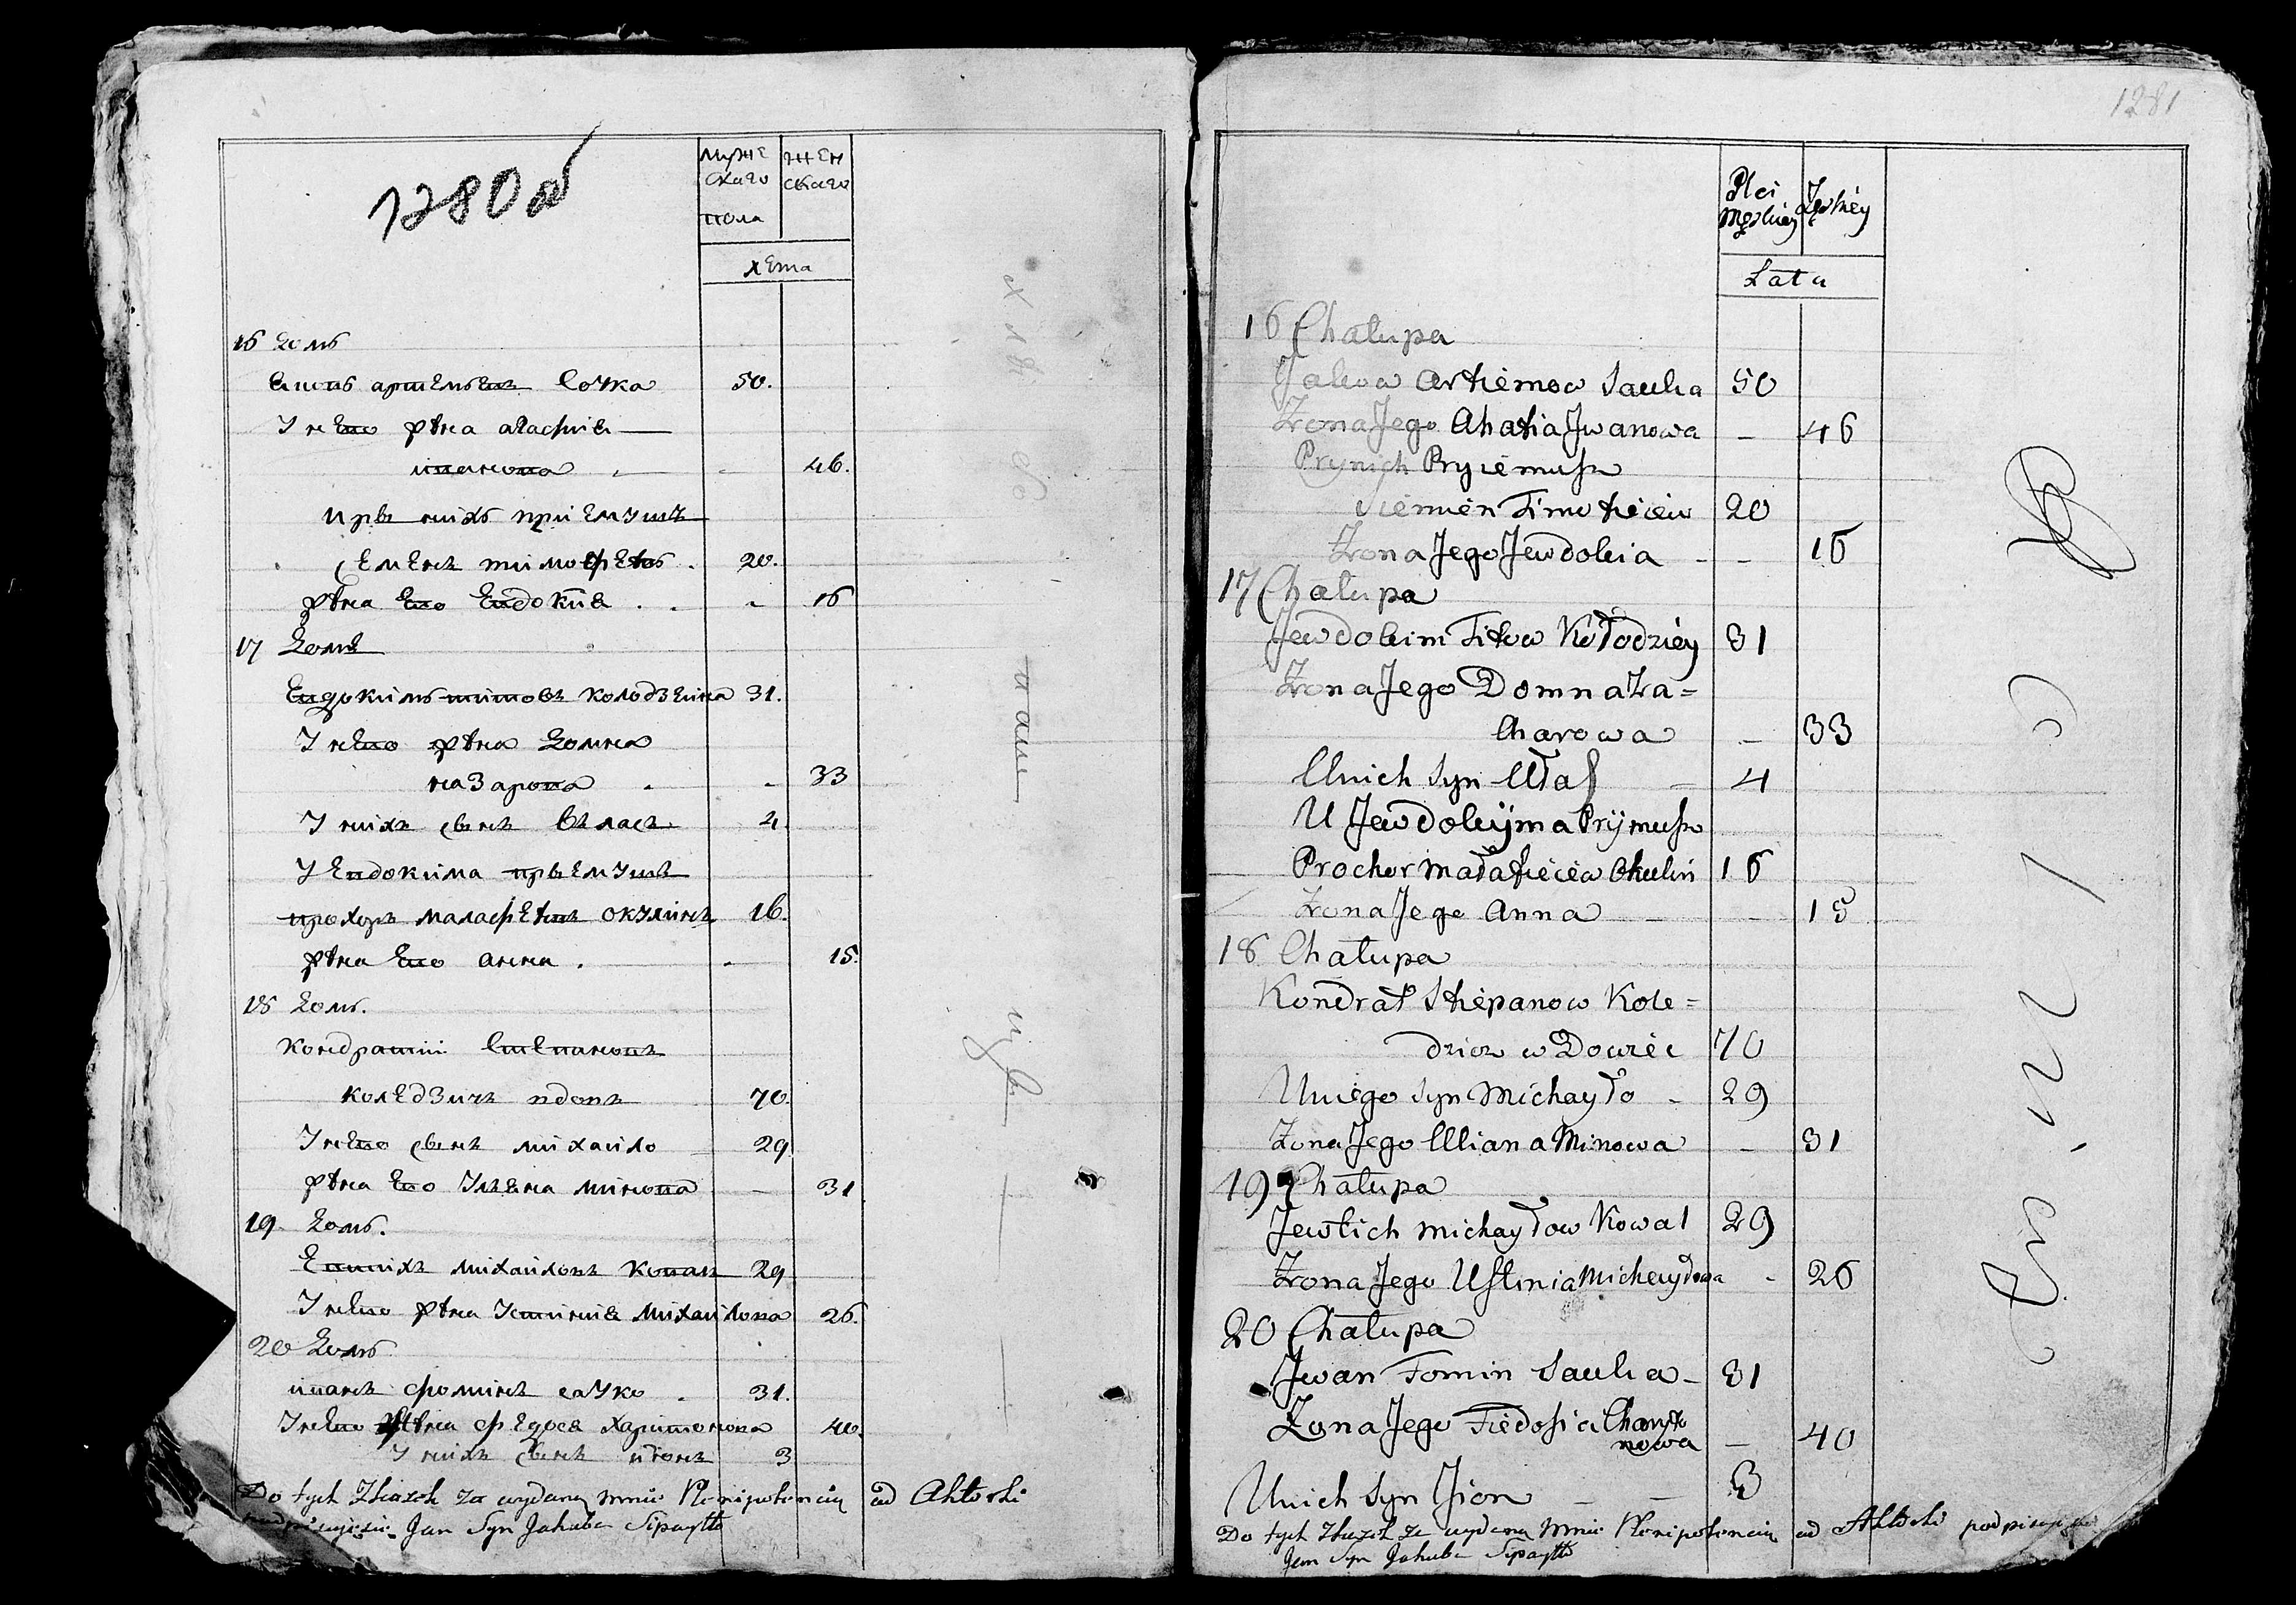 1280 об
муже
скаго
пола
жен
скаго
лета
16 домъ
Якопъ артемьевъ Саука 50.
У него жена агафия
иванова 46.
при нихъ приемушъ
Семенъ тимофеевъ 20.
жена Его Евдокия 16
17 домъ
Евдокимъ титовъ колодзейка 31.
У него жена домна
назарова 33
У нихъ сынъ власъ 4.
У Евдокима приемушъ
прохоръ маласфеевъ окулинъ 16.
жена Его анна 15.
18 домъ.
кондратий степановъ
коледзичъ вдовъ 70.
У него сынъ михайло 29
жена Его Ульяна минова 31
19 домъ.
Евтихъ михайловъ коваль 29
У него жена Устиния михайлова 26.
20 домъ
иванъ фоминъ сауко 31.
У него жена федося харитонова 40.
У нихъ сынъ изонъ 3
Do tych Skazek za wydaną mnie Plenipotencią od Aktorki
podpisuję się Jan Syn Jakuba Sipayłło
1281
Płci
Męskiey
Żeńskiey
Lata
16 Chałupa
Jakow Artiemow Sauka 50
Żona Jego Ahafia Jwanowa 46
Prynich Pryiemusz
Siemien Timofieiew 20
Żona Jego Jewdokia 16
17 Chałupa
Jewdokim Titow Kołodziey 31
Żona Jego Domna Za=
charowa 33
Unich Syn Ułas 4
U Jewdokijma Prijmusz
Prochor Małafieiew Okulin 16
Żona Jego Anna 15
18 Chałupa
Kondrat Stiepanow Kole=
dzicz wdowiec 70
Uniego Syn Michayło 29
Żona Jego Uliana Minowa 31
19 Chałupa
Jewtich Michayłow Kowal 29
Żona Jego Ustinia Michayłowa 26
20 Chałupa
Jwan Fomin Sauka 31
Żona Jego Fiedosia Charyto
nowa 40
Unich Syn Jzon 3
Do tych Skazek za wydaną mnie Plenipotencią od Aktorki podpisuję się
Jan Syn Jakuba Sipayłło